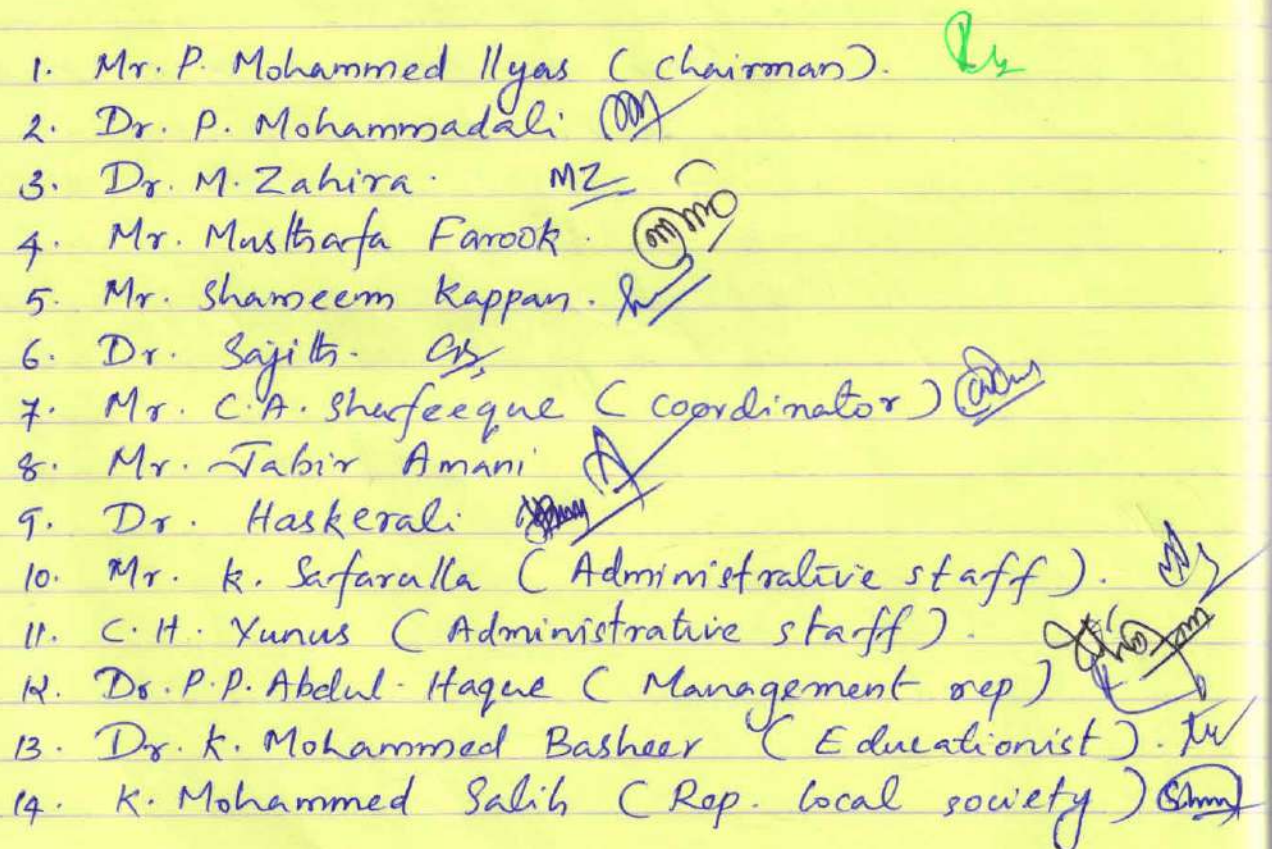 1. Mr. P. Mohammed Ilyas (Chairman).
2. Dr. P. Mohammadali
3. Dr. M. Zahira. MZ
4. Mr. Musthafa Farook.
5. Mr. Shameem Kappan.
6. Dr. Sajith.
7. Mr. C.A. Shafeeque (coordinator)
8. Mr. Jabir Amani
9. Dr. Haskerali
10. Mr. K. Safaralla (Administrative staff).
11. C.H. Yunus (Administrative staff).
12. Dr. P.P. Abdul Haque (Management rep)
13. Dr. K. Mohammed Basheer (Educationist).
14. K. Mohammed Salih (Rep. local society)